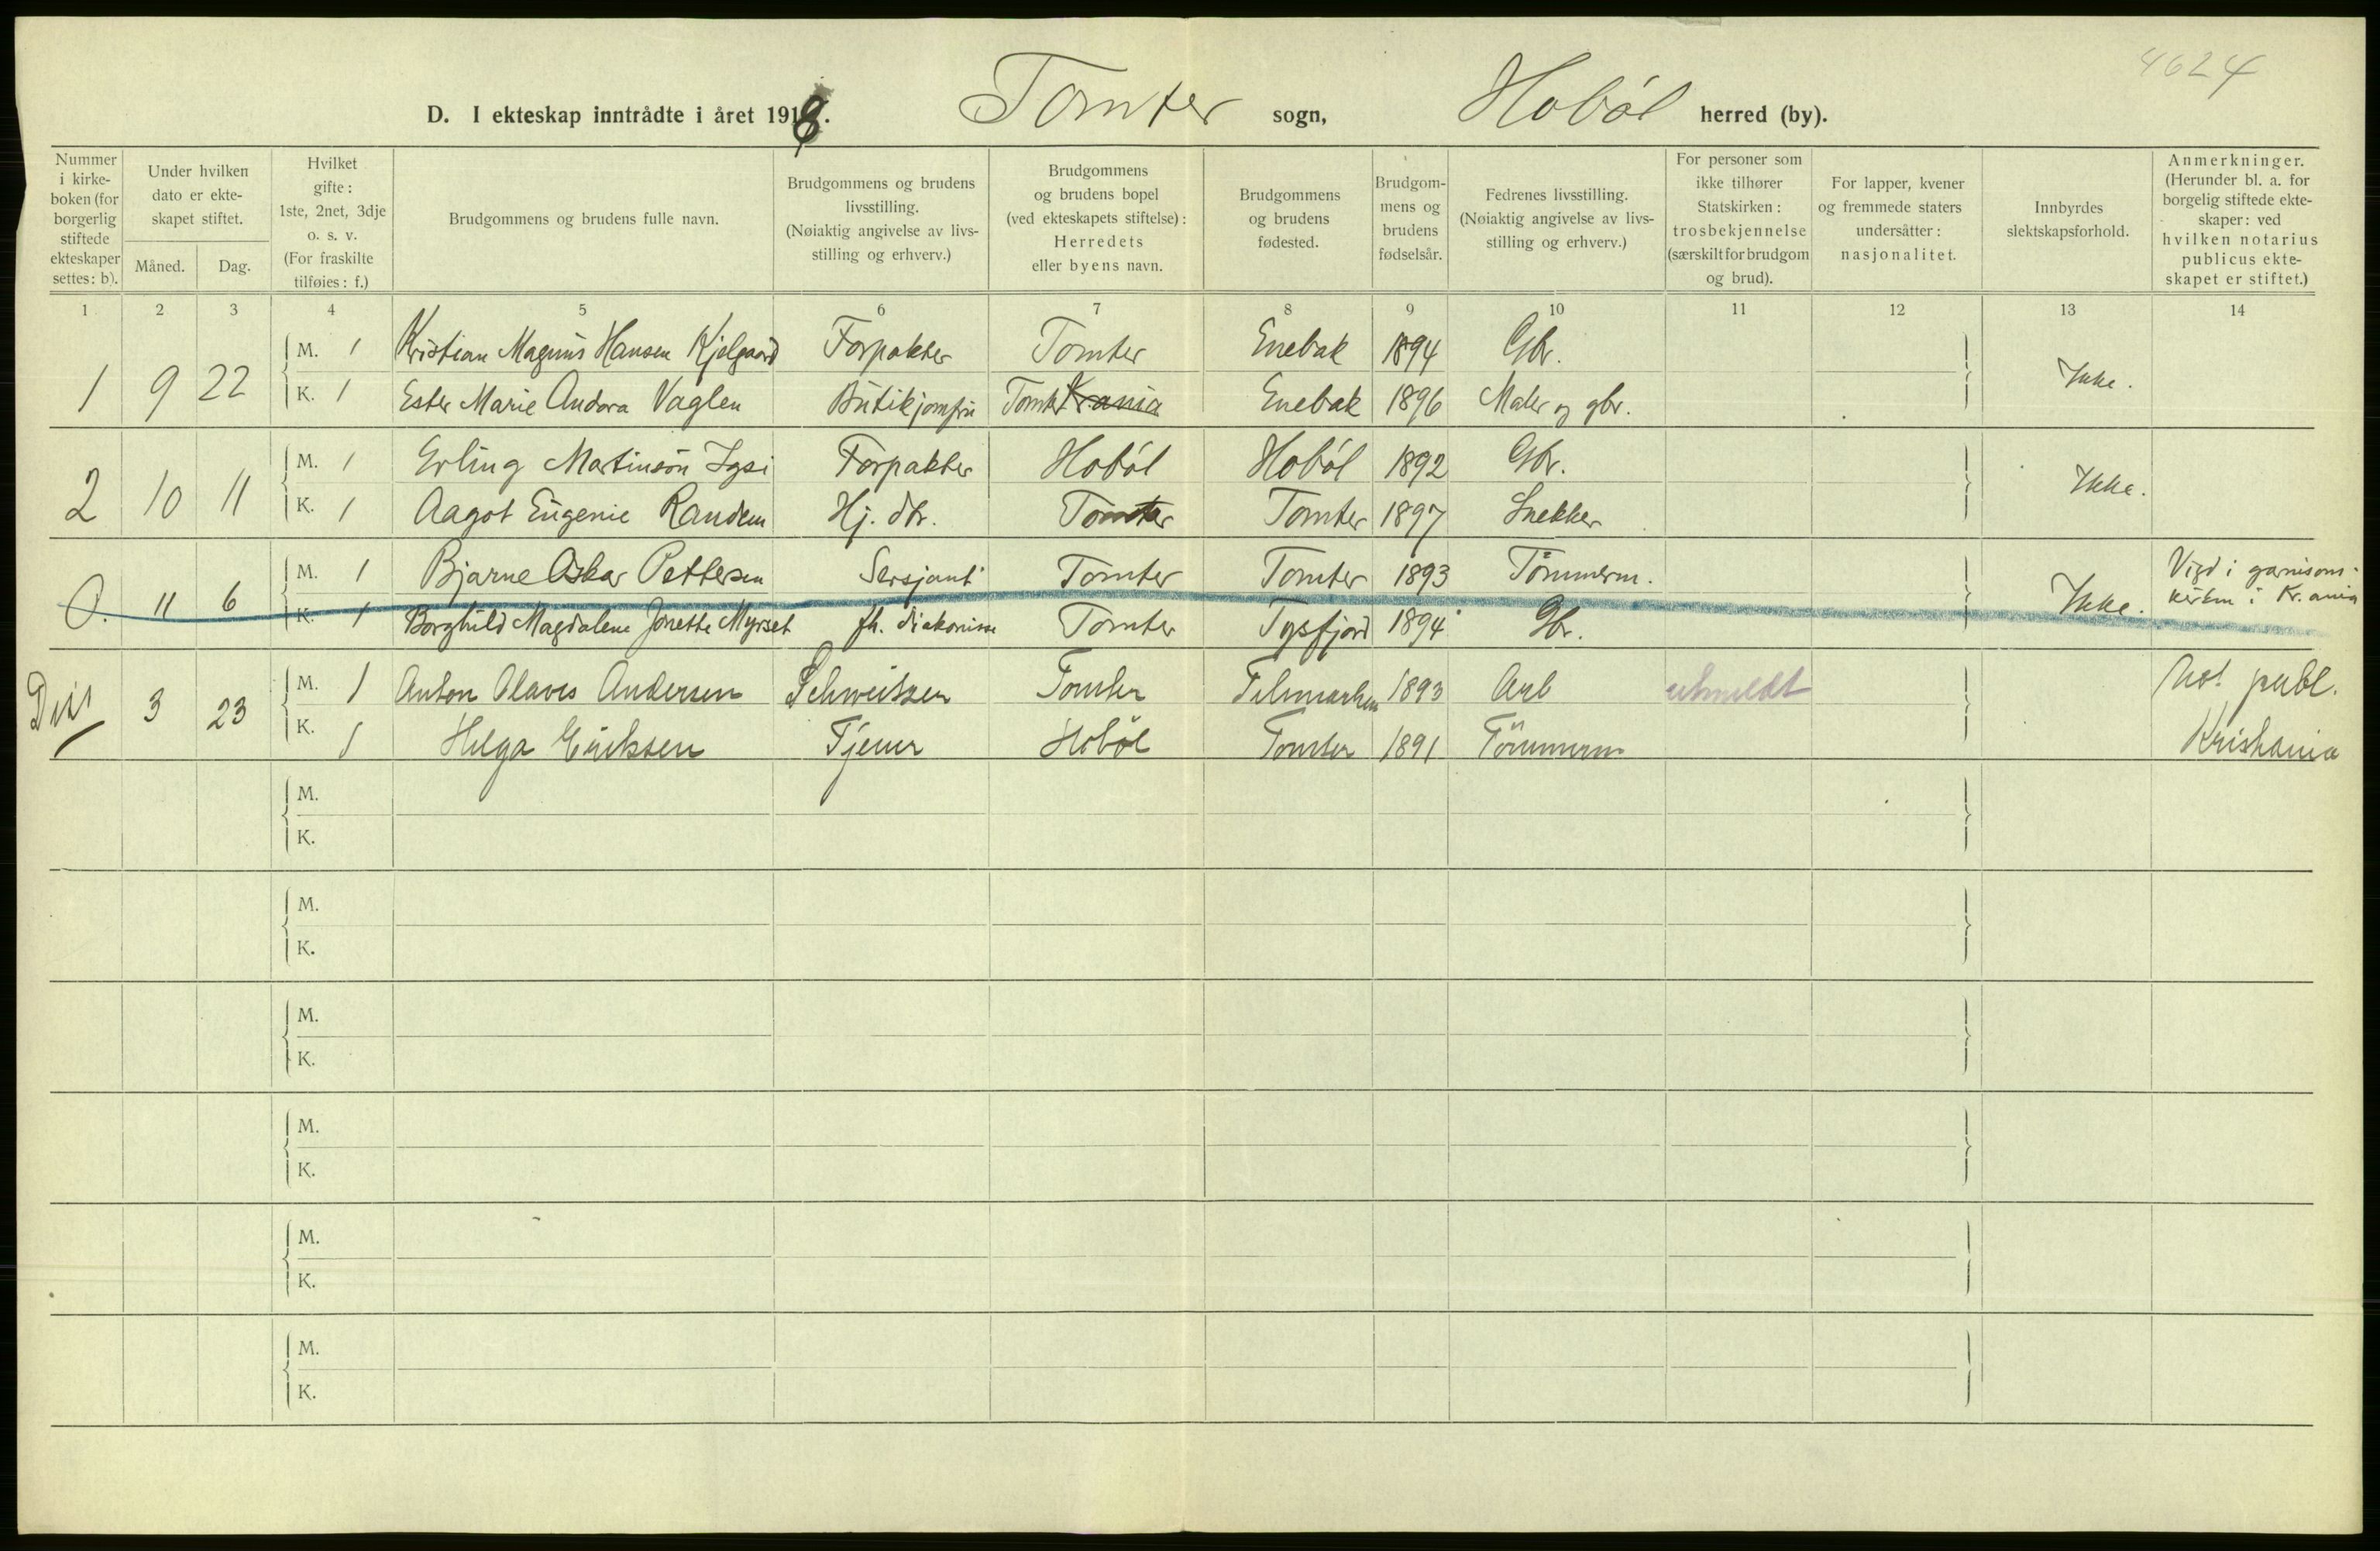 4624
D. I ekteskap inntrådte i året 1918. Tomter sogn, Hobøl herred (by).
Nummer i kirke-boken (for borgerlig stiftede ekteskaper settes: b).
Under hvilken dato er ekte-skapet stiftet.
Måned. Dag.
Hvilket gifte: 1ste, 2net, 3dje o. s. v. (For fraskilte tilføies: f.)
Brudgommens og brudens fulle navn.
Brudgommens og brudens livsstilling. (Nøiaktig angivelse av livs-stilling og erhverv.)
Brudgommens og brudens bopel (ved ekteskapets stiftelse): Herredets eller byens navn.
Brudgommens og brudens fødested.
Brudgom-mens og brudens fødselsår.
Fedrenes livsstilling. (Nøiaktig angivelse av livs-stilling og erhverv.)
For personer som ikke tilhører Statskirken: trosbekjennelse (særskilt for brudgom og brud).
For lapper, kvener og fremmede staters undersåtter: nasjonalitet.
Innbyrdes slektskapsforhold.
Anmerkninger. (Herunder bl. a. for borgelig stiftede ekte-skaper: ved hvilken notarius publicus ekte-skapet er stiftet.)
1 2 3 4 5 6 7 8 9 10 11 12 13 14
M. 1 Kristian Magnus Hansen Kjølgaard Forpakter Tomter Enebak 1894 Gbr.
1 9 22 Ikke.
K. 1 Ester Marie Andora Vaglen Butikjomfru Tomter Kr.ania Enebak 1896 Maler og gbr.
M. 1 Erling Martinsøn Igsi Forpakter Hobøl Hobøl 1892 Gbr.
2 10 11 Ikke.
K. 1 Aagot Eugenie Randem Hj. dtr. Tomter Tomter 1897 Snekker
M. 1 Bjarne Oskar Pettersen Sersjant Tomter Tomter 1893 Tömmerm. Vigd i garnisons-
0. 11 6 Ikke. kirken i Kr.ania
K. 1 Borghild Magdalene Jonette Myrset fh. diakonisse Tomter Tysfjord 1894 Gbr.
M. 1 Anton Olaves Andersen Schweitzer Tomter Telemarken 1893 Arb utmeldt Not. publ.
Diss 3 23
K. 1 Helga Eriksen Tjener Hobøl Tomter 1891 Tömmerm Kristiania
M.
K.
M.
K.
M.
K.
M.
K.
M.
K.
M.
K.